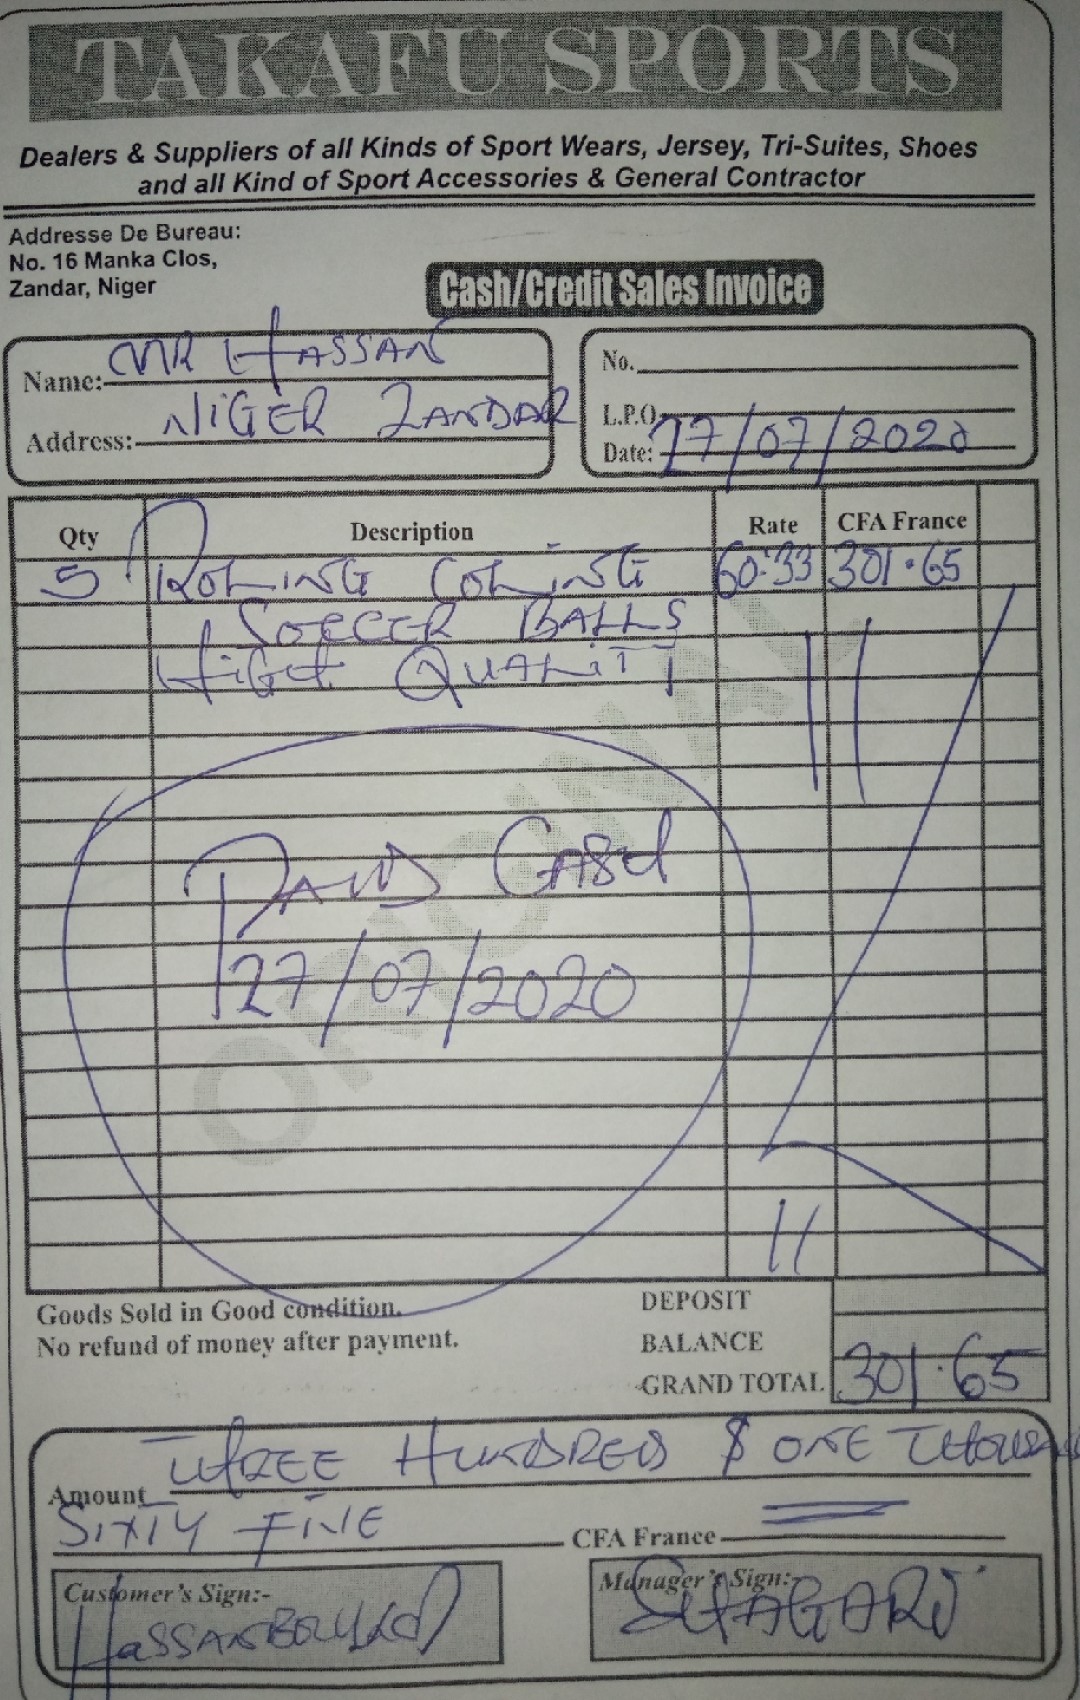 TAKAFU SPORTS
Dealers & Suppliers of all Kinds of Sport Wears, Jersey, Tri-Suites, Shoes
and all Kind of Sport Accessories & General Contractor
Addresse De Bureau:
No. 16 Manka Clos,
Zandar, Niger
Cash/Credit Sales Invoice
Name: MR HASSAN
Address: NIGER ZANDAR
No.
L.P.O.
Date: 27/07/2020
Qty Description Rate CFA France
5 ROLING COLING 60.33 301.65
SOECCER BALLS
HIGH QUALITY
ORIGINAL
PAID CASH
27/07/2020
Goods Sold in Good condition.
No refund of money after payment.
DEPOSIT
BALANCE
GRAND TOTAL 301.65
Amount THREE HUNDRED & ONE THOUSAND
SIXTY FIVE CFA France
Customer's Sign:-
Manager's Sign:-
SHAGARI